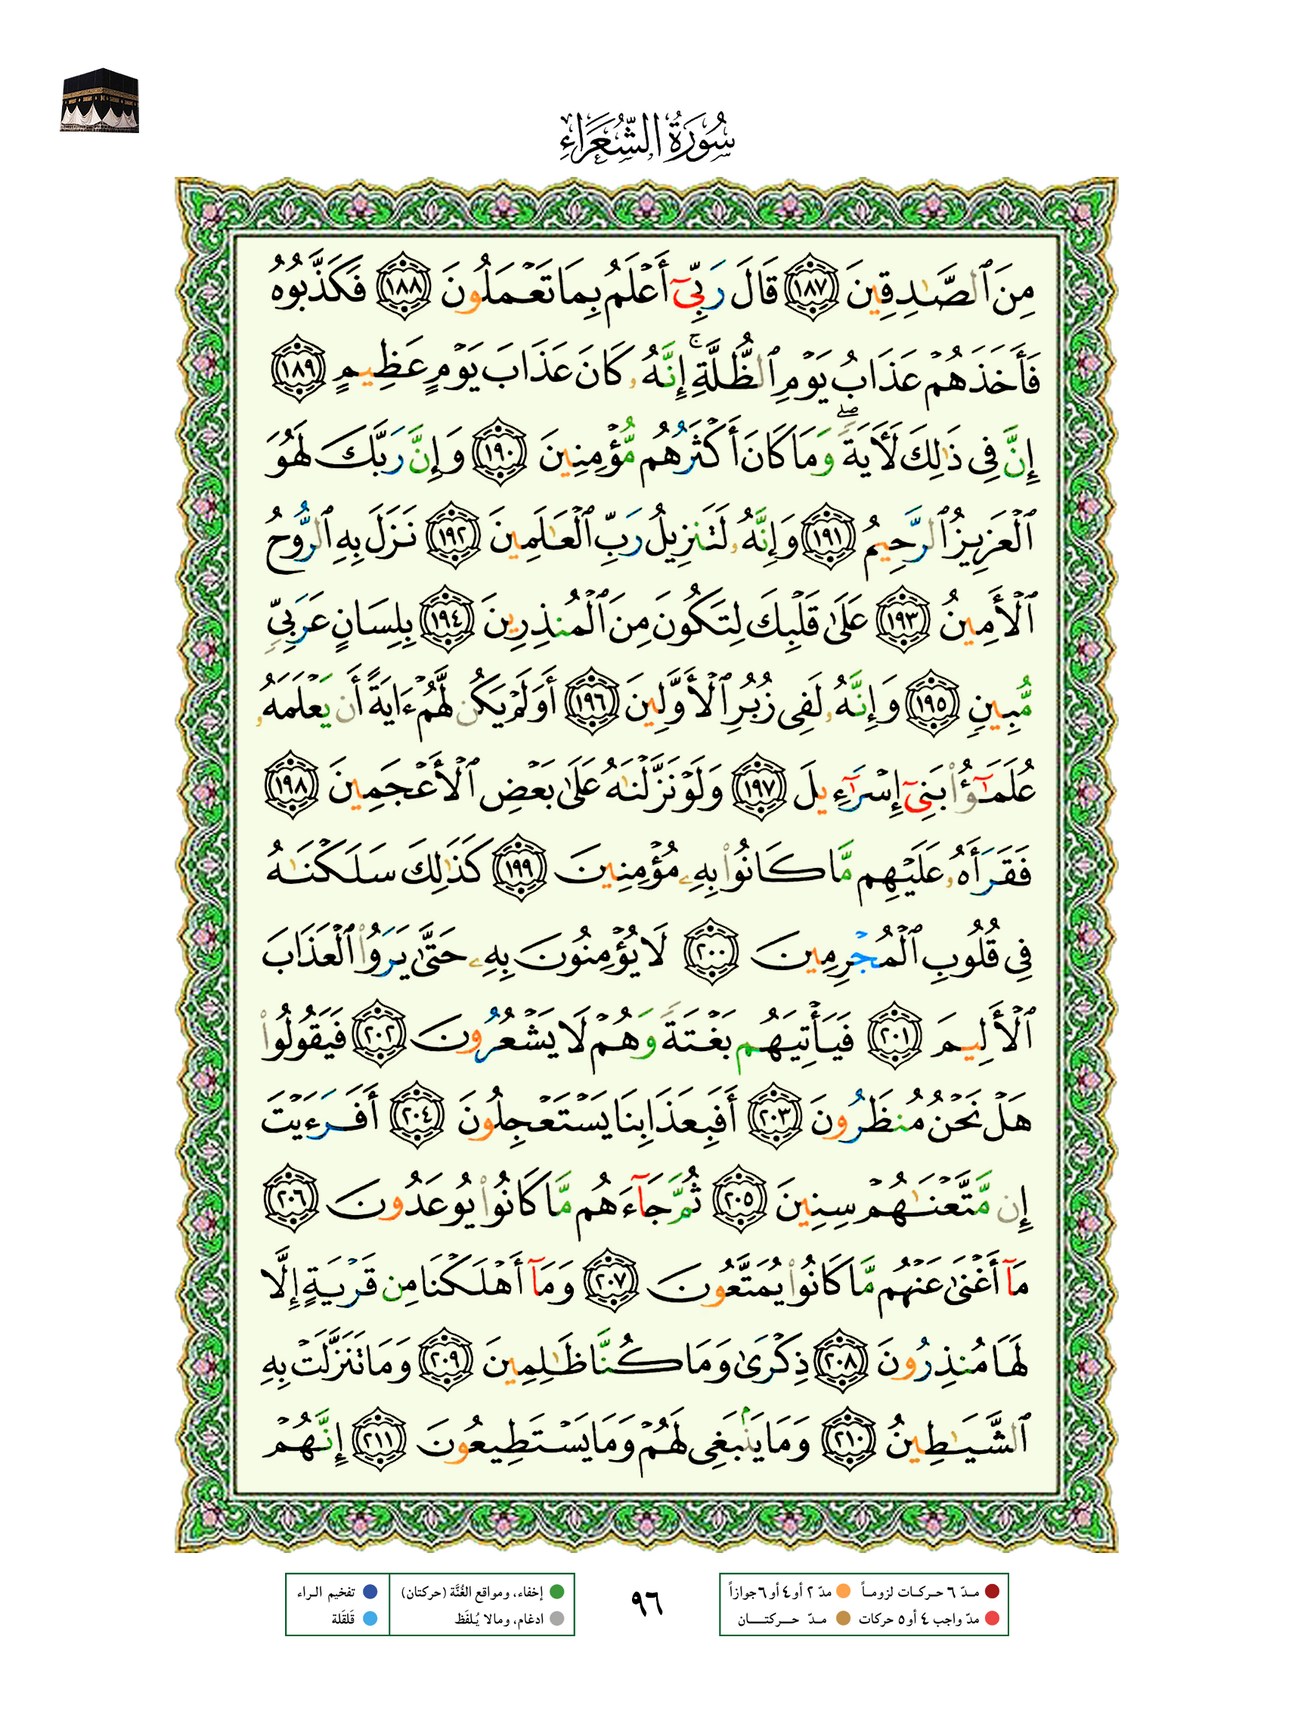 سُورَةُ الشُّعَرَاءِ
مِنَ ٱلصَّـٰدِقِينَ ١٨٧ قَالَ رَبِّىٓ أَعْلَمُ بِمَا تَعْمَلُونَ ١٨٨ فَكَذَّبُوهُ
فَأَخَذَهُمْ عَذَابُ يَوْمِ ٱلظُّلَّةِ ۚ إِنَّهُۥ كَانَ عَذَابَ يَوْمٍ عَظِيمٍ ١٨٩
إِنَّ فِى ذَٰلِكَ لَـَٔايَةً ۖ وَمَا كَانَ أَكْثَرُهُم مُّؤْمِنِينَ ١٩٠ وَإِنَّ رَبَّكَ لَهُوَ
ٱلْعَزِيزُ ٱلرَّحِيمُ ١٩١ وَإِنَّهُۥ لَتَنزِيلُ رَبِّ ٱلْعَـٰلَمِينَ ١٩٢ نَزَلَ بِهِ ٱلرُّوحُ
ٱلْأَمِينُ ١٩٣ عَلَىٰ قَلْبِكَ لِتَكُونَ مِنَ ٱلْمُنذِرِينَ ١٩٤ بِلِسَانٍ عَرَبِىٍّ
مُّبِينٍ ١٩٥ وَإِنَّهُۥ لَفِى زُبُرِ ٱلْأَوَّلِينَ ١٩٦ أَوَلَمْ يَكُن لَّهُمْ ءَايَةً أَن يَعْلَمَهُۥ
عُلَمَـٰٓؤُا۟ بَنِىٓ إِسْرَٰٓءِيلَ ١٩٧ وَلَوْ نَزَّلْنَـٰهُ عَلَىٰ بَعْضِ ٱلْأَعْجَمِينَ ١٩٨
فَقَرَأَهُۥ عَلَيْهِم مَّا كَانُوا۟ بِهِۦ مُؤْمِنِينَ ١٩٩ كَذَٰلِكَ سَلَكْنَـٰهُ
فِى قُلُوبِ ٱلْمُجْرِمِينَ ٢٠٠ لَا يُؤْمِنُونَ بِهِۦ حَتَّىٰ يَرَوُا۟ ٱلْعَذَابَ
ٱلْأَلِيمَ ٢٠١ فَيَأْتِيَهُم بَغْتَةً وَهُمْ لَا يَشْعُرُونَ ٢٠٢ فَيَقُولُوا۟
هَلْ نَحْنُ مُنظَرُونَ ٢٠٣ أَفَبِعَذَابِنَا يَسْتَعْجِلُونَ ٢٠٤ أَفَرَءَيْتَ
إِن مَّتَّعْنَـٰهُمْ سِنِينَ ٢٠٥ ثُمَّ جَآءَهُم مَّا كَانُوا۟ يُوعَدُونَ ٢٠٦
مَآ أَغْنَىٰ عَنْهُم مَّا كَانُوا۟ يُمَتَّعُونَ ٢٠٧ وَمَآ أَهْلَكْنَا مِن قَرْيَةٍ إِلَّا
لَهَا مُنذِرُونَ ٢٠٨ ذِكْرَىٰ وَمَا كُنَّا ظَـٰلِمِينَ ٢٠٩ وَمَا تَنَزَّلَتْ بِهِ
ٱلشَّيَـٰطِينُ ٢١٠ وَمَا يَنۢبَغِى لَهُمْ وَمَا يَسْتَطِيعُونَ ٢١١ إِنَّهُمْ
مـدّ ٦ حركـات لزومـاً مدّ ٢ أو ٤ أو ٦ جوازاً
مدّ واجب ٤ أو ٥ حركات مـدّ حــركتــان
٩٦
إخفاء، ومواقع الغُنَّة (حركتان) تفخيم الـراء
ادغام، ومالا يُـلفَظ قَلقَلة